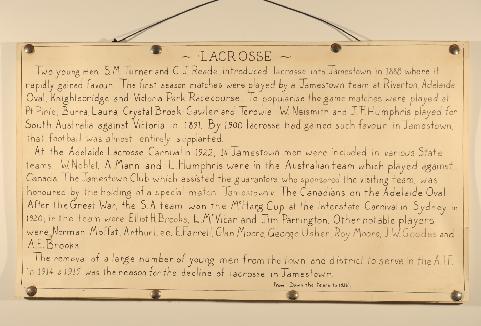 ~ LACROSSE ~
Two young men S.M. Turner and C.J. Reade, introduced lacrosse into Jamestown in 1888 where it
rapidly gained favour. The first season matches were played by a Jamestown team at Riverton, Adelaide
Oval, Knightsbridge and Victoria Park Racecourse. To popularise the game matches were played at
Pt Pirie, Burra, Laura, Crystal Brook, Gawler and Terowie. W. Neismith and J.F. Humphris played for
South Australia against Victoria in 1891. By 1900 lacrosse had gained such favour in Jamestown,
that football was almost entirely supplanted.
At the Adelaide Lacrosse Carnival in 1922, 14 Jamestown men were included in various State
teams. W. Noblet, A. Mann and L. Humphris were in the Australian team which played against
Canada. The Jamestown Club which assisted the guarantors who sponsored the visiting team, was
honoured by the holding of a special match Jamestown v. The Canadians on the Adelaide Oval.
After the Great War, the S.A. team won the McHarg Cup at the Interstate Carnival in Sydney in
1920; in the team were Elliot H. Brooks, L. McVicar and Jim Parrington. Other notable players
were Norman Moffat, Arthur Lee, E. Farrel, Clan Moore, George Usher, Roy Moore, J.W. Goodes and
A.E. Brooks.
The removal of a large number of young men from the town and district to serve in the A.I.F.
in 1914 & 1915 was the reason for the decline of lacrosse in Jamestown.
From Down the Years